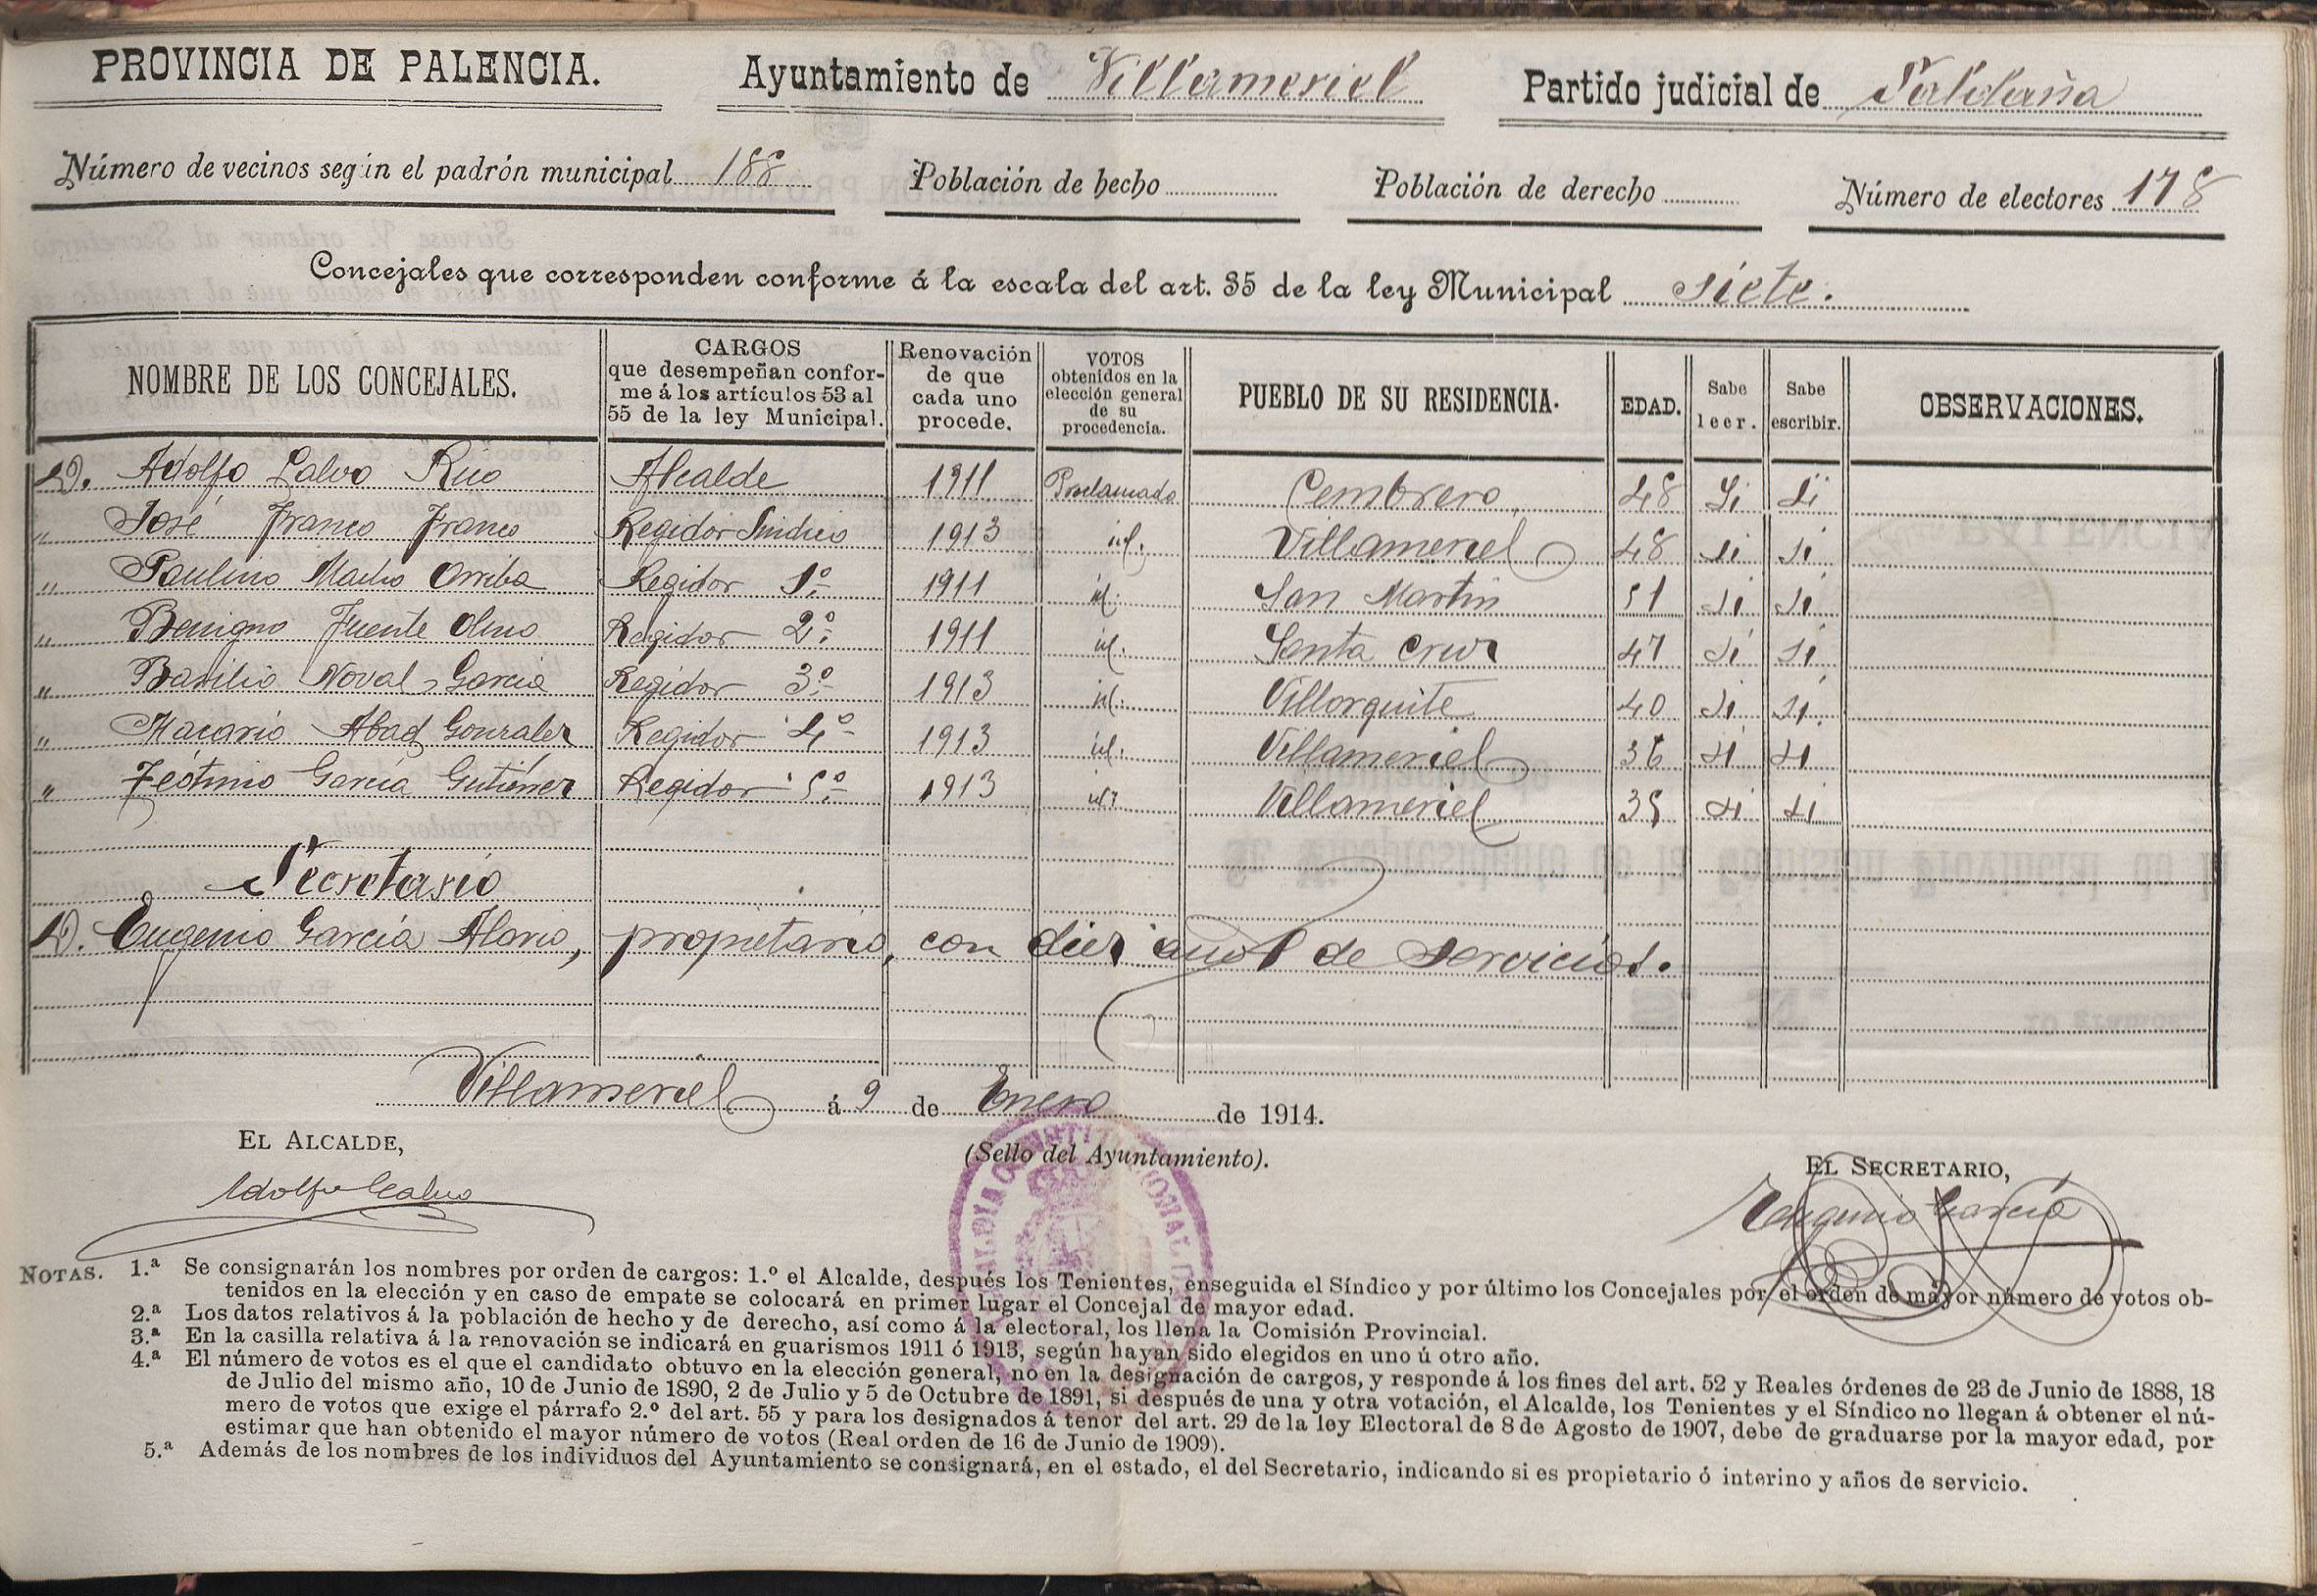 PROVINCIA DE PALENCIA. Ayuntamiento de Villameriel Partido judicial de Saldaña
Número de vecinos según el padrón municipal 188 Población de hecho Población de derecho Número de electores 178
Concejales que corresponden conforme á la escala del art. 35 de la ley Municipal siete.
NOMBRE DE LOS CONCEJALES.
CARGOS
que desempeñan confor-
me á los artículos 53 al
55 de la ley Municipal.
Renovación
de que
cada uno
procede.
VOTOS
obtenidos en la
elección general
de su
procedencia.
PUEBLO DE SU RESIDENCIA.
EDAD.
Sabe
leer.
Sabe
escribir.
OBSERVACIONES.
D. Adolfo Calvo Alcalde 1911 Proclamado Cembrero 48 Si Si
" José Franco Franco Regidor Sindico 1913 id. Villameriel 48 si si
" Paulino Macho Arriba Regidor 1º 1911 id. San Martin 51 si si
" Benigno Fuente Olmo Regidor 2º 1911 id. Santa Cruz 47 si si
" Basilio Noval Garcia Regidor 3º 1913 id. Villorquite 40 si si.
" Macario Abad Gonzalez Regidor 4º 1913 id. Villameriel 36 si si
" Teótimo García Gutiérrez Regidor 5º 1913 id. Villameriel 35 si si
Secretario
D. Eugenio García propietario, con diez años de servicios.
Villameriel á 9 de Enero de 1914.
EL ALCALDE,
Adolfo Calvo
(Sello del Ayuntamiento).
EL SECRETARIO,
Eugenio García
NOTAS. 1.ª Se consignarán los nombres por orden de cargos: 1.º el Alcalde, después los Tenientes, enseguida el Síndico y por último los Concejales por el orden de mayor número de votos ob-
tenidos en la elección y en caso de empate se colocará en primer lugar el Concejal de mayor edad.
2.ª Los datos relativos á la población de hecho y de derecho, así como á la electoral, los llena la Comisión Provincial.
3.ª En la casilla relativa á la renovación se indicará en guarismos 1911 ó 1913, según hayan sido elegidos en uno ú otro año.
4.ª El número de votos es el que el candidato obtuvo en la elección general, no en la designación de cargos, y responde á los fines del art. 52 y Reales órdenes de 23 de Junio de 1888, 18
de Julio del mismo año, 10 de Junio de 1890, 2 de Julio y 5 de Octubre de 1891, si después de una y otra votación, el Alcalde, los Tenientes y el Síndico no llegan á obtener el nú-
mero de votos que exige el párrafo 2.º del art. 55 y para los designados á tenor del art. 29 de la ley Electoral de 8 de Agosto de 1907, debe de graduarse por la mayor edad, por
estimar que han obtenido el mayor número de votos (Real orden de 16 de Junio de 1909).
5.ª Además de los nombres de los individuos del Ayuntamiento se consignará, en el estado, el del Secretario, indicando si es propietario ó interino y años de servicio.